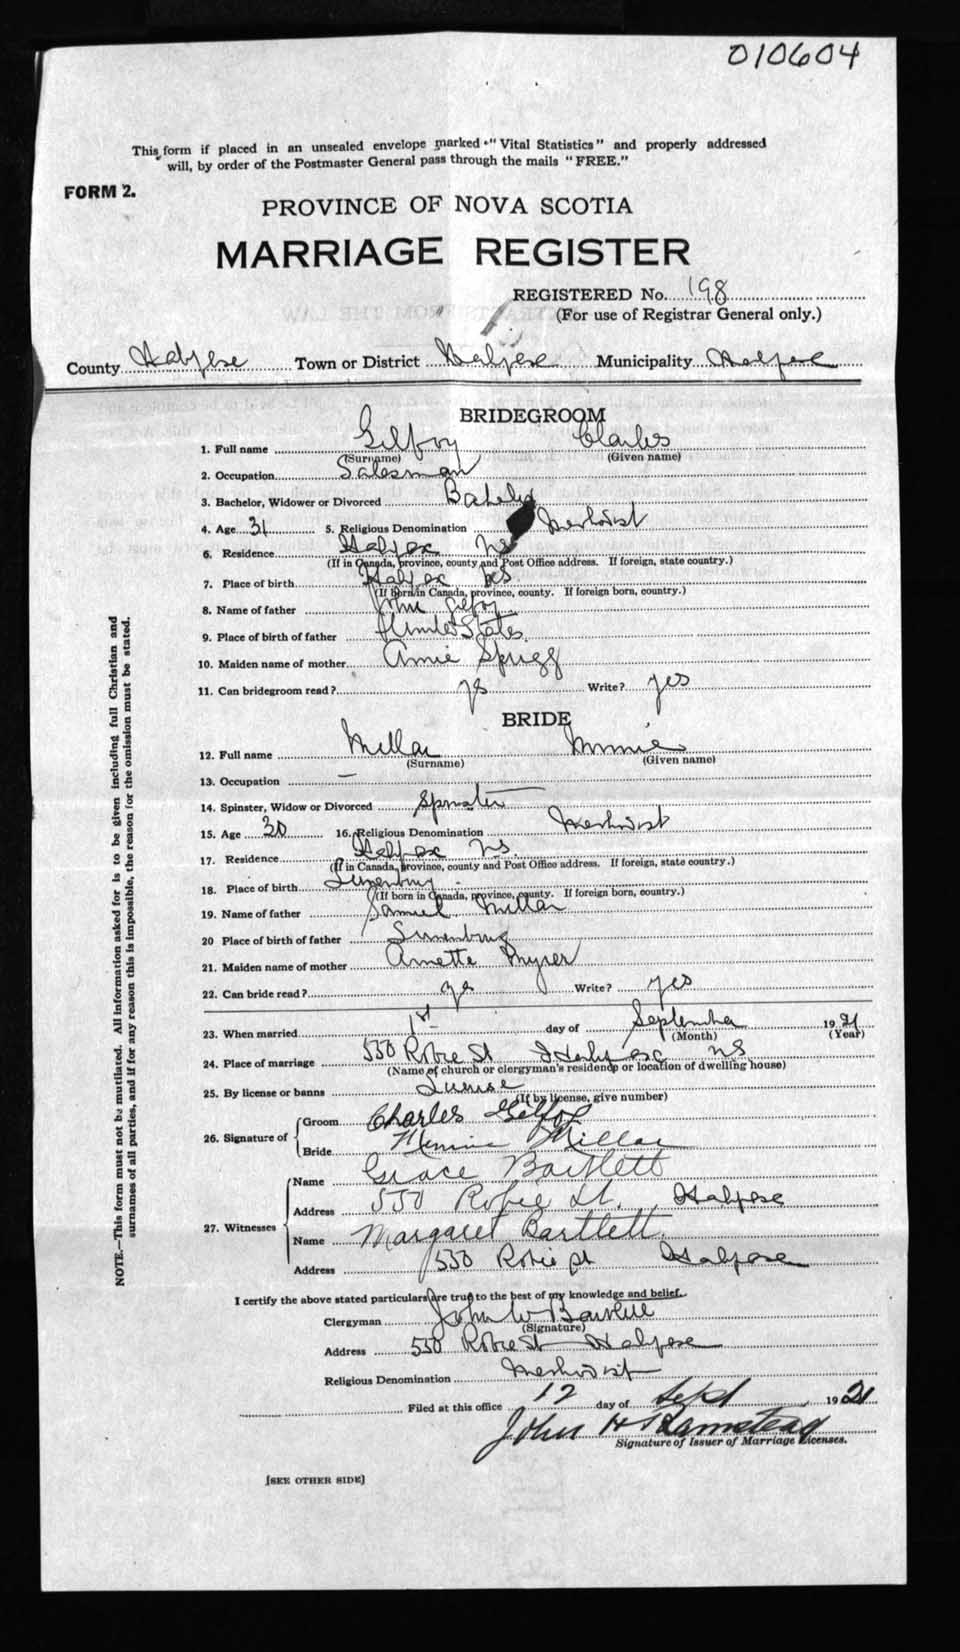 010604
This form if placed in an unsealed envelope marked "Vital Statistics" and properly addressed
will, by order of the Postmaster General pass through the mails "FREE."
FORM 2.
PROVINCE OF NOVA SCOTIA
MARRIAGE REGISTER
REGISTERED No. 198
(For use of Registrar General only.)
County Halifax Town or District Halifax Municipality Halifax
BRIDEGROOM
1. Full name Gilfoy Charles
(Surname) (Given name)
2. Occupation Salesman
3. Bachelor, Widower or Divorced Bachelor
4. Age 31 5. Religious Denomination Methodist
6. Residence Halifax NS
(If in Canada, province, county and Post Office address. If foreign, state country.)
7. Place of birth Halifax NS
(If Born in Canada, province, county. If foreign born, country.)
8. Name of father John Gilfoy
9. Place of birth of father United States
10. Maiden name of mother Annie Sprigg
11. Can bridegroom read? yes Write? yes
BRIDE
12. Full name Millar Minnie
(Surname) (Given name)
13. Occupation —
14. Spinster, Widow or Divorced Spinster
15. Age 30 16. Religious Denomination Methodist
17. Residence Halifax NS.
(If in Canada, province, county and Post Office address. If foreign, state country.)
18. Place of birth Lunenburg
(If born in Canada, province, county. If foreign born, country.)
19. Name of father Samuel Millar
20 Place of birth of father Lunenburg
21. Maiden name of mother Annette
22. Can bride read? yes Write? yes
23. When married 1st day of September 1921
(Month) (Year)
24. Place of marriage 550 Robie St Halifax NS
(Name of church or clergyman's residence or location of dwelling house)
25. By license or banns License
(If by license, give number)
26. Signature of Groom Charles Gilfoy
Bride Minnie Millar
27. Witnesses Name Grace Bartlett
Address 550 Robie St. Halifax
Name Margaret Bartlett
Address 550 Robie St Halifax
I certify the above stated particulars are true to the best of my knowledge and belief.
Clergyman John W Bartlett
(Signature)
Address 550 Robie St Halifax
Religious Denomination Methodist
Filed at this office 12 day of Sept 1921
John H
Signature of Issuer of Marriage Licenses.
[SEE OTHER SIDE]
NOTE.—This form must not be mutilated. All information asked for is to be given including full Christian and
surnames of all parties, and if for any reason this is impossible, the reason for the omission must be stated.